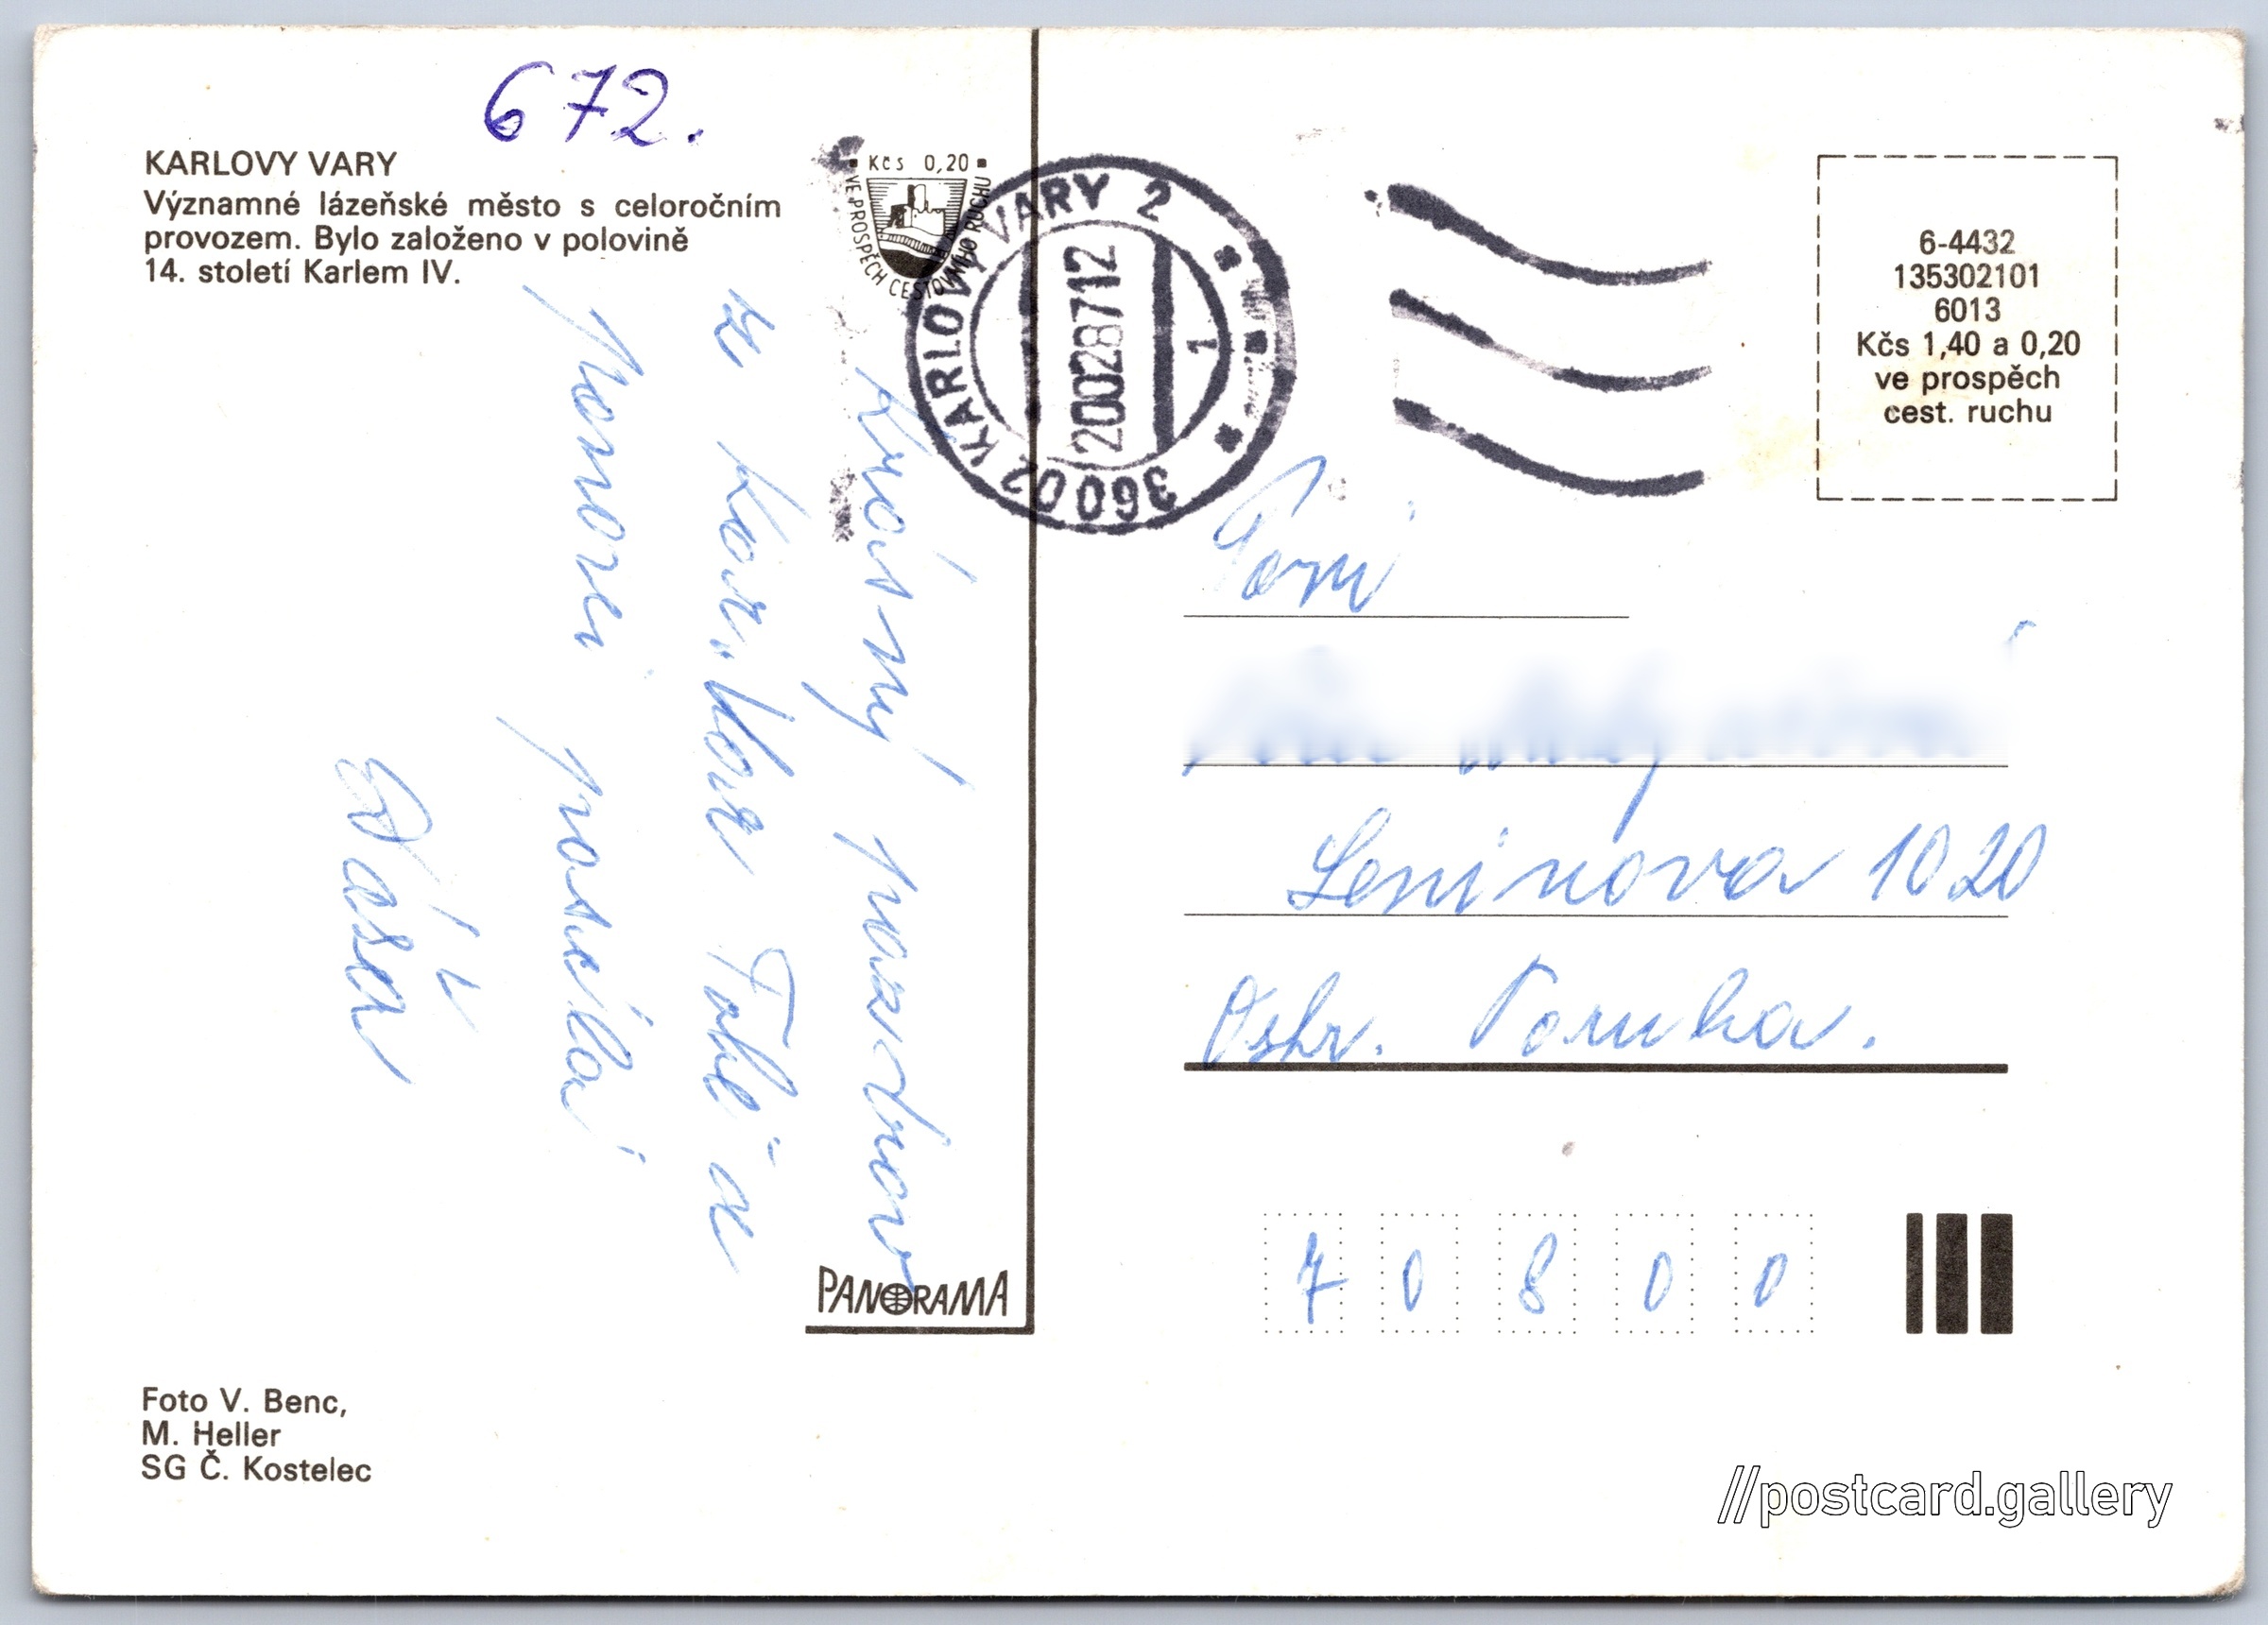 672.
KARLOVY VARY
Významné lázeňské město s celoročním
provozem. Bylo založeno v polovině
14. století Karlem IV.
Kčs 0,20
VE PROSPĚCH CESTOVNÍHO RUCHU
36002 KARLOVY VARY 2
20028712
1
6-4432
135302101
6013
Kčs 1,40 a 0,20
ve prospěch
cest. ruchu
Krásný pozdrav
z Kar. Var Tobě a
posílá
Dáša
Paní
Leninova 1020
Ostr. Poruba.
70800
PANORAMA
Foto V. Benc,
M. Heller
SG Č. Kostelec
//postcard.gallery